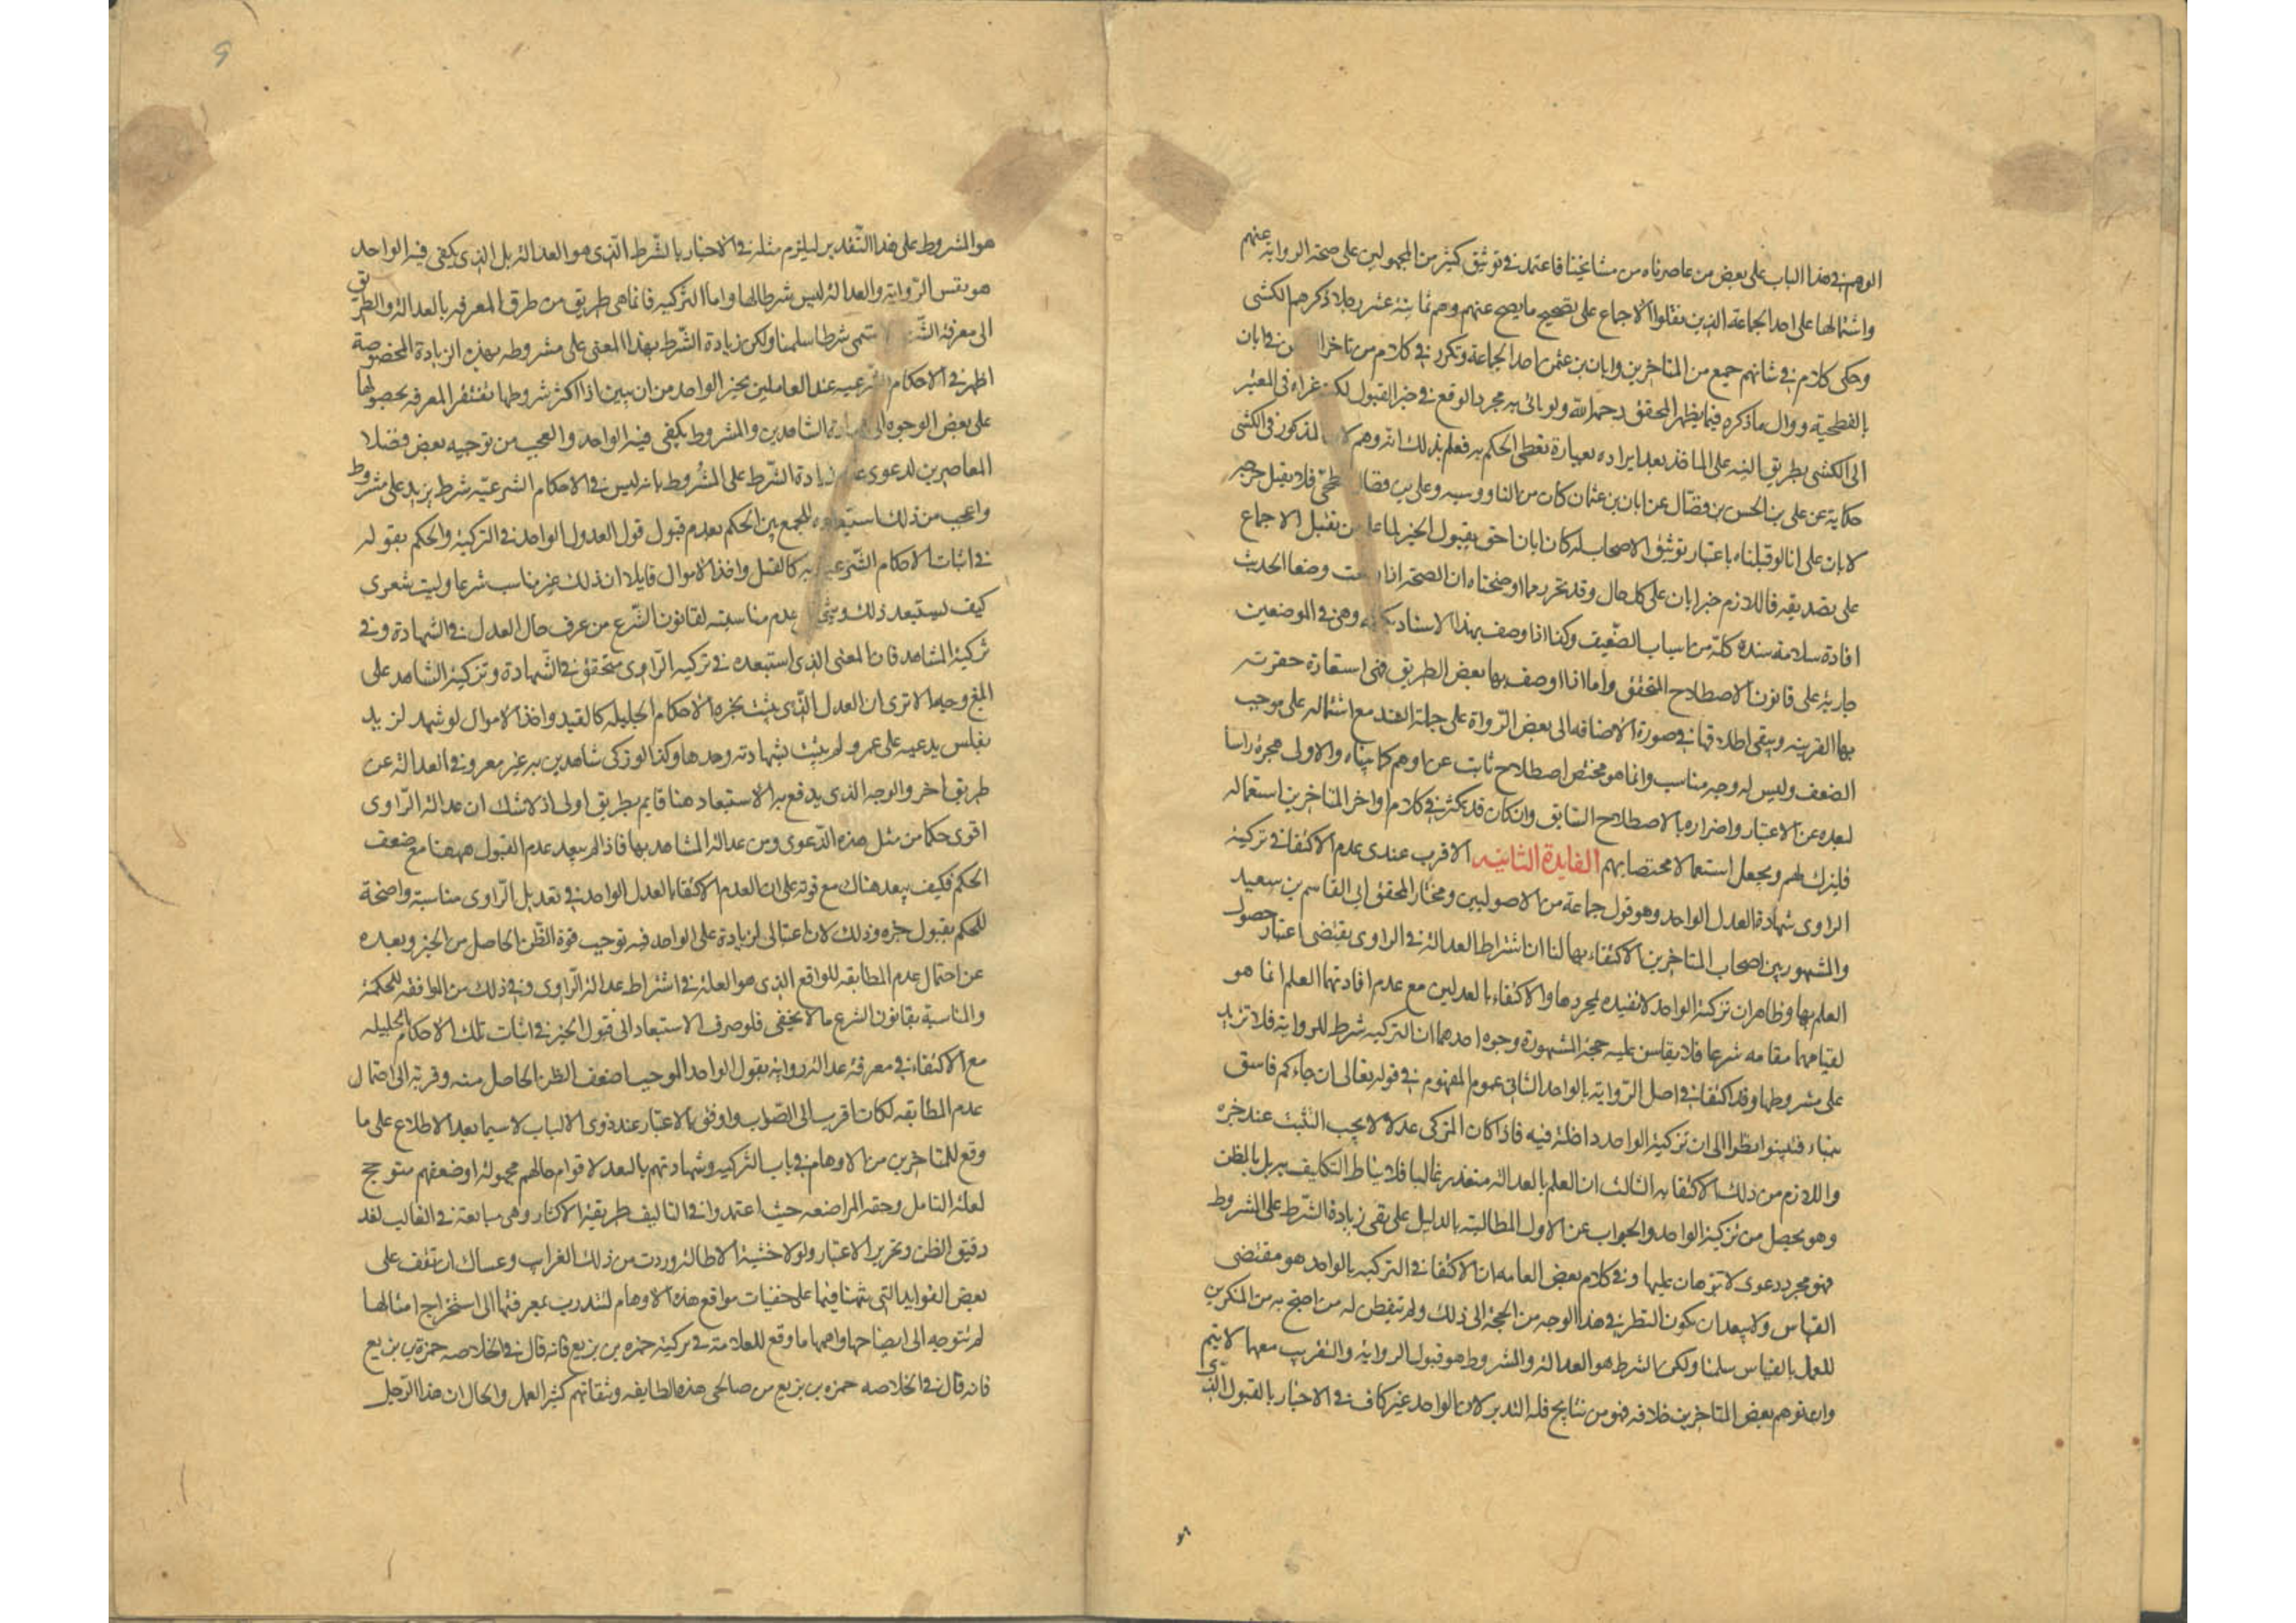 الوهم في هذا الباب على بعض من عاصرناه من مشايخنا فاعتمد في توثيق كثير من المجهولين على صحة الرواية عنهم
واشتمالها على احد الجماعة الذين نقلوا الاجماع على تصحيح ما يصح عنهم وهم ثمانية عشر رجلا ذكرهم الكشي
وحكى كلامه في شانهم جمع من المتاخرين وابان بن عثمن احد الجماعة وتكرر في كلام من تاخر في ابان
بالفطحية ووال ما ذكره فيما يظهر المحقق رحمه الله ولو باتى به مجرد الوقع في خبر القبول لكنه عزاه في المعتبر
الى الكشي بطريق التنبه على الماخذ بعد ايراده بعبارة تعطى الحكم به فعلم بذلك انه وهم لان المذكور في الكشي
حكاية عن علي بن الحسن بن فضال عن ابان بن عثمان كان من الناووسيه وعلي بن فضال فطحي فلا يقبل جرحه
لابان على انا لو قبلناه باعتبار توثيق الاصحاب له كان ابان احق بقبول الخبر لما علم من نقل الاجماع
على تصديقه فاللازم خبر ابان على كل حال وقد تحرر مما اوضحناه ان الصحة اذا وقعت وصفا للحديث
افادة سلامة سنده كله من اسباب الضعيف وكذا اذا وصف بهذا الاسناد بكماله وهي في الموضعين
جارية على قانون الاصطلاح المتحقق واما اذا وصف بها بعض الطريق فهي استعارة حفرت
بها القرينه ويبقى اطلاقها في صورة الاضافه الى بعض الرواة على جملة السند مع اشتماله على موجب
الضعف وليس له وجه مناسب وانما هو مختص اصطلاح ثابت عن اوهم كما بيناه والاولى هجره راسا
لبعده عن الاعتبار واضراره بالاصطلاح السابق وان كان قد يكثر في كلام اواخر المتاخرين استعماله
فليترك لهم ويجعل استعمالا مختصا بهم الفايدة الثانيه الاقرب عندى عدم الاكتفا في تزكية
الراوى شهادة العدل الواحد وهو قول جماعة من الاصوليين ومختار المحقق ابي القاسم بن سعيد
والمشهور بين اصحاب المتاخرين الاكتفاء بها لنا ان اشتراط العدالة في الراوى يقتضى اعتبار حصول
العلم بها وظاهر ان تزكية الواحد لا تفيده بمجردها والاكتفاء بالعدلين مع عدم افادتهما العلم انما هو
لقيامهما مقامه شرعا فلا يقاس عليه حجة المشهورة وجوه احدهما ان التزكيه شرط للرواية فلا تزيد
على مشروطها وقد اكتفى في اصل الرواية بالواحد الثانى عموم المفهوم في قوله تعالى ان جاءكم فاسق
بنباء فتبينوا نظرا الى ان تزكية الواحد داخلة فيه فاذا كان المزكى عدلا لا يجب التثبت عند خبره
واللازم من ذلك الاكتفا به الثالث ان العلم بالعدالة متعذر غالبا فلا يناط التكليف به بل بالظن
وهو يحصل من تزكية الواحد والجواب عن الاول المطالبة بالدليل على نفي زيادة الشرط على المشروط
فهو مجرد دعوى لا برهان عليها وفي كلام بعض العامه ان الاكتفا في التزكيه بالواحد هو مقتضى
القياس ولا يبعد ان يكون النظر في هذا الوجه من الحجة الى ذلك ولم يتفطن له من احتج به من المنكرين
للعمل بالقياس سلمنا ولكن الشرط هو العدالة والمشروط هو قبول الرواية والتقريب معها لا يتم
وان توهم بعض المتاخرين خلافه فهو من نتايج قلة التدبر لان الواحد غير كاف في الاخبار بالقبول الذى
هو المشروط على هذا التقدير ليلزم مثله في الاخبار بالشرط الذى هو العدالة بل الذى يكفى فيه الواحد
هو نفس الرواية والعدالة ليس شرطا لها واما التزكيه فانما هي طريق من طرق المعرفه بالعدالة والطريق
الى معرفة الشرط لا يسمى شرطا سلمنا ولكن زيادة الشرط بهذا المعنى على مشروطه بهذه الزيادة المخصوصة
اظهر في الاحكام الشرعيه عند العاملين بخبر الواحد من ان يبين اذ اكثر شروطها تفتقر المعرفه بحصولها
على بعض الوجوه الى شهادة الشاهدين والمشروط يكفى فيه الواحد والعجب من توجيه بعض فضلا
المعاصرين لدعوى عدم زيادة الشرط على المشروط بانه ليس في الاحكام الشرعيه شرط يزيد على مشروط
واعجب من ذلك استبعاده للجمع بين الحكم بعدم قبول قول العدول الواحد في التزكية والحكم بقوله
في اثبات الاحكام الشرعية به كالقتل واخذ الاموال قايلا ان ذلك غير مناسب شرعا وليت شعرى
كيف يستبعد ذلك عدم مناسبته لقانون الشرع من عرف حال العدل في الشهادة وفي
تزكية الشاهد فان المعنى الذى استبعده في تزكيه الراوى متحقق في الشهادة وتزكية الشاهد على
ابلغ وجه الا ترى ان العدل الذى يثبت بخبره الاحكام الجليله كالقيد واخذ الاموال لو شهد لزيد
بفلس يدعيه على عمرو لم يثبت بشهادته وحدها وكذا لو زكى شاهدين به غير معروفي العدالة عن
طريق اخر والوجه الذى يدفع به الاستبعاد هنا قايم بطريق اولى اذ لا شك ان عدالة الراوى
اقوى حكما من مثل هذه الدعوى ومن عدالة الشاهد بها فاذا لم يبعد عدم القبول ههنا مع ضعف
الحكم فكيف يبعد هناك مع قوته على ان لعدم الاكتفا بالعدل الواحد في تعديل الراوى مناسبة واضحة
للحكم بقبول خبره وذلك لان اعتبار الزيادة على الواحد فيه توجب قوة الظن الحاصل من الخبر وبعده
عن احتمال عدم المطابقه للواقع الذى هو العلة في اشتراط عدالة الراوى وفي ذلك من الموافقه للحكمة
والمناسبة بقانون الشرع ما لا يخفى فلو صرف الاستبعاد الى قبول الخبر في اثبات تلك الاحكام الجليله
مع الاكتفاء في معرفة عدالة رواية بقول الواحد الموجب لضعف الظن الحاصل منه وقربه الى احتمال
عدم المطابقه لكان اقرب الى الصواب واوفق بالاعتبار عند ذوى الالباب لا سيما بعد الاطلاع على ما
وقع للمتاخرين من الاوهام في باب التزكيه وشهادتهم بالعدل لاقوام حالهم مجهولة او ضعفهم مترجح
لقلة التامل وخفة المراجعه حيث اعتمدوا في التاليف طريقة الاكثار وهي مباينة في الغالب لغد
دقيق النظر وتحرير الاعتبار ولولا خشية الاطالة لاوردت من ذلك الغرايب وعساك ان تقف على
بعض الفوايد التى نبهنا فيها على خفيات مواقع هذه الاوهام لتتدرب بمعرفتها الى استخراج امثالها
لم نتوجه الى ايضاحها واهمها ما وقع للعلامة في تزكية حمزه بن بزيع فانه قال في الخلاصه حمزة بن بزيع
فانه قال في الخلاصه حمزه بن بزيع من صالحى هذه الطايفه وثقاتهم كثير العمل والحال ان هذا الرجل